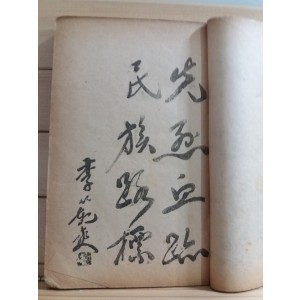 先烈血跡
民族路標
李